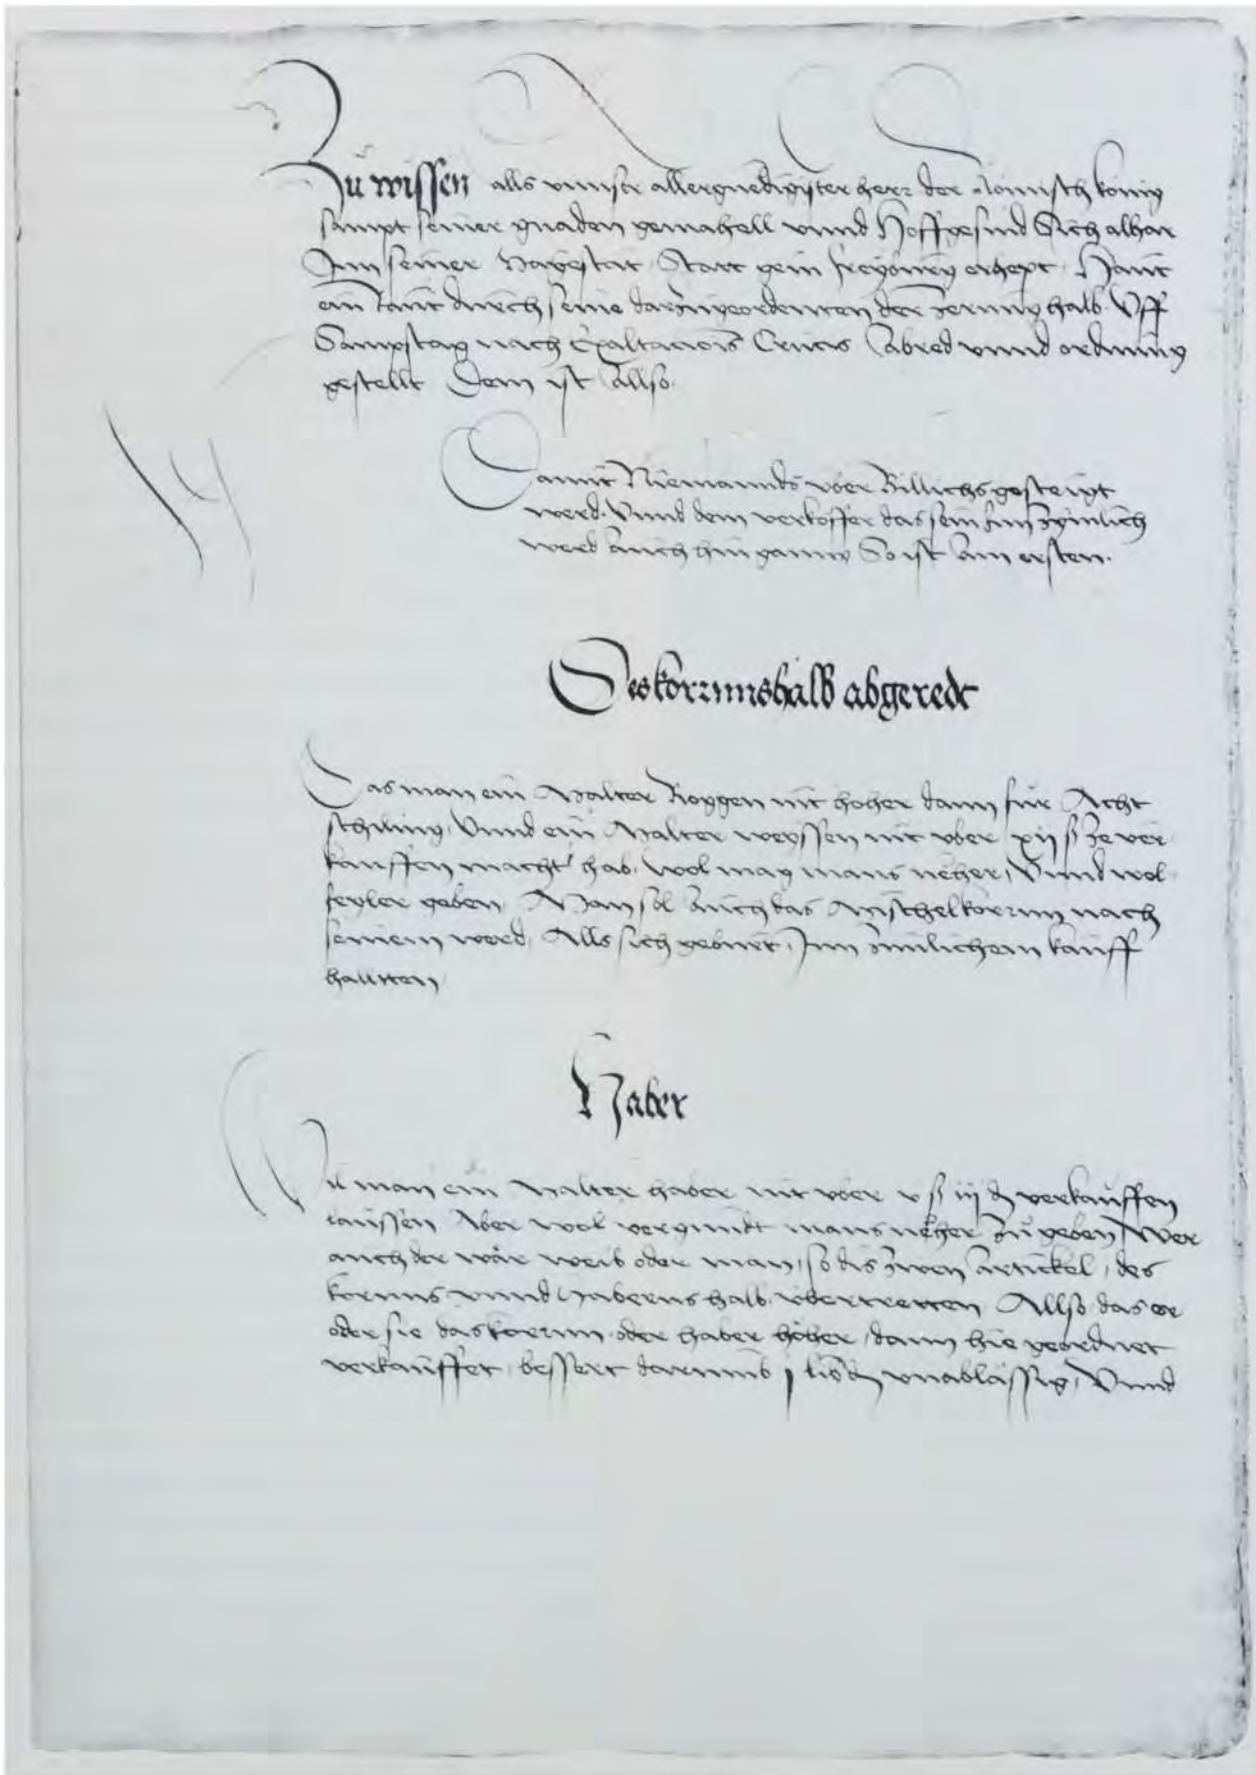 Zu wissen alls unnser allergnedigister herr der Römisch könig
sampt seiner gnaden gemahell unnd Hoffgesind Sich alhar
Inn seiner Mayestat Statt gein freyburg Hatt
ein Ratt durch seine darzugeordenten der zerung halb Uff
Sampstag nach Exaltacionis Crucis Abred unnd ordnung
gestellt Dem ist Allso.
Damit Niemannds uber Billichs gesteigt
werd. Unnd dem verköffer das sein zymlich
werd Auch hin ganng So ist Am ersten.
Des kornnshalb abgeredt
Das man ein Malter Roggen nit hoher dann für Acht
schilling, Unnd ein Malter weyssen nit uber xij ß ze ver
kauffen macht hab. wol mag mans neher, Unnd wol
feyler geben Man sol Auch das Mischelkornn nach
seinem werd, Alls sich gebürt, Inn zimlichem kauff
halltten
Haber
Wil man ein Malter haber nit uber v ß iij d verkauffen
laussen Aber wol vergundt mans neher zu geben, Wer
auch der wär weib oder man, so dis zwen Artickel, des
kornns unnd Haberns halb ubertretten Allso das er
oder sie das kornn oder haber höher, dann hie geordnet
verkauffet, bessert darumb j lib d unablässig, Unnd